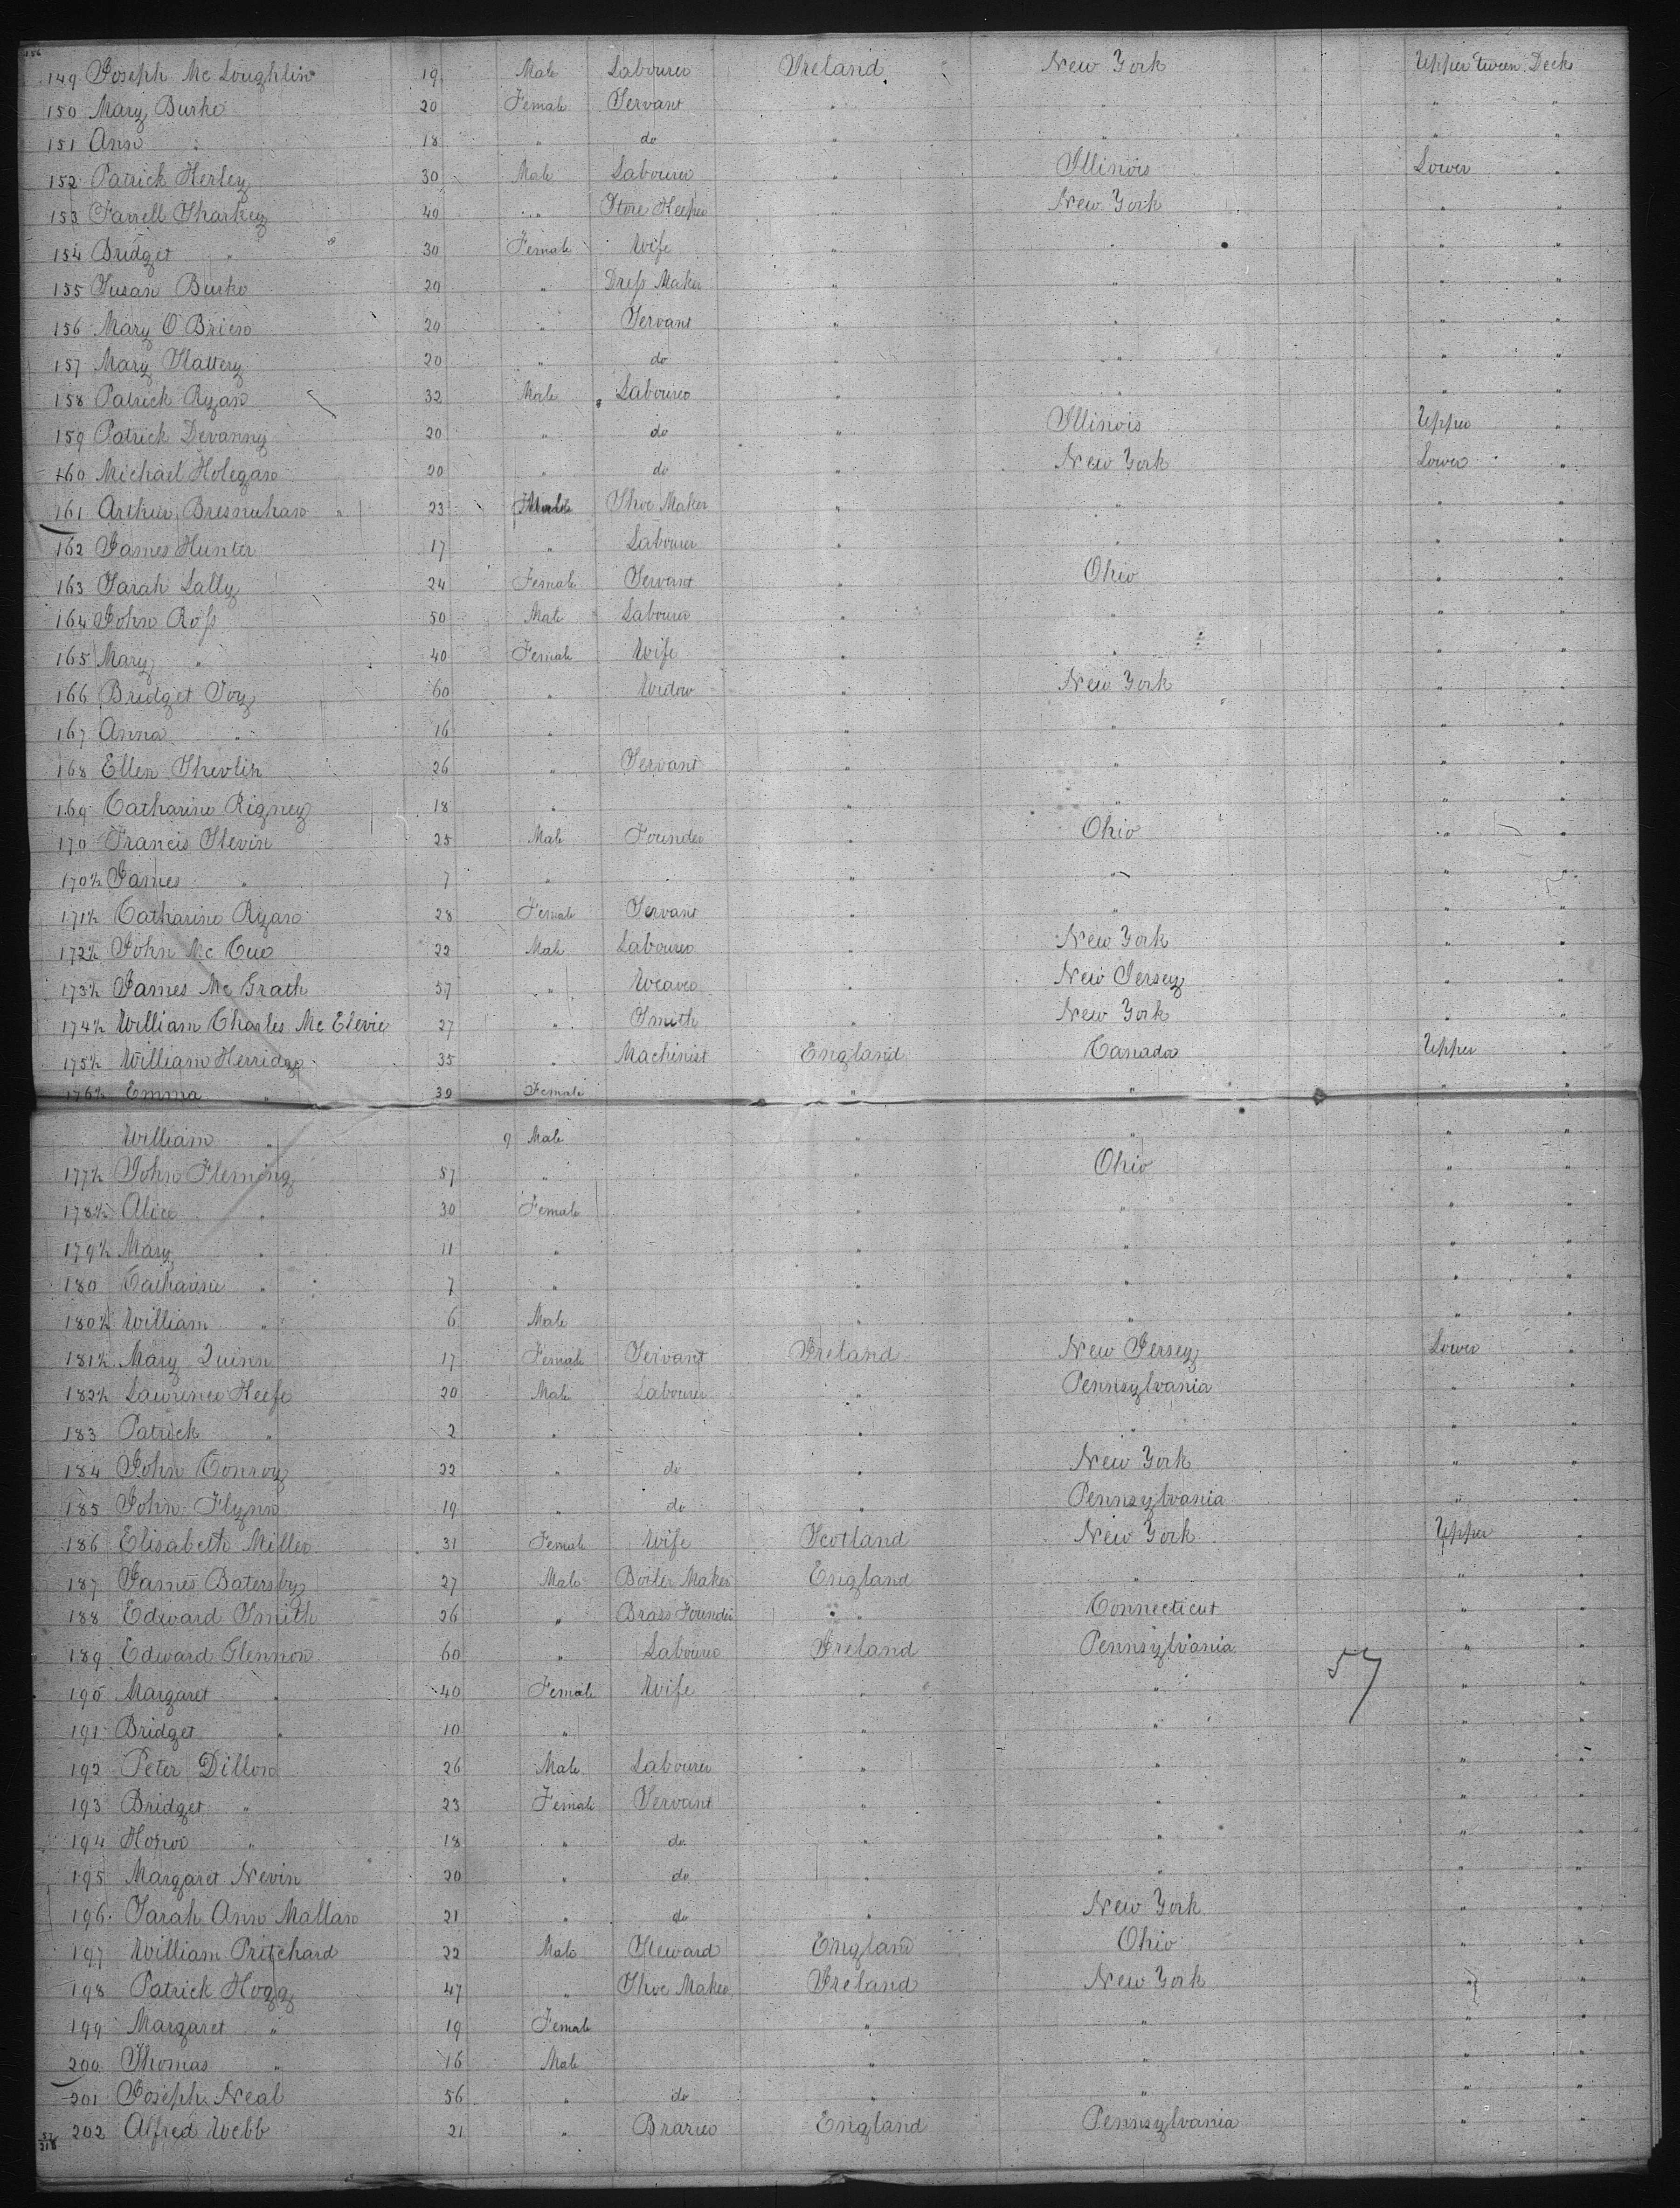 156
149 Joseph Mc Loughlin 19 Male Labourer Ireland New York Upper tween Decks
150 Mary Burke 20 Female Servant " " " "
151 Ann " 18 " do " " " "
152 Patrick Herley 30 Male Labourer " Illinois Lower "
153 Farrell Sharkey 40 " Store Keeper " New York " "
154 Bridget " 30 Female Wife " " " "
155 Susan Burke 20 " Dress Maker " " " "
156 Mary O Brien 20 " Servant " " " "
157 Mary Slattery 20 " do " " " "
158 Patrick Ryan 32 Male Labourer " " " "
159 Patrick Devanny 20 " do " Illinois Upper "
160 Michael Holegan 20 " do " New York Lower "
161 Arthur Bresnuhan 23 Male Shoe Maker " " " "
162 James Hunter 17 " Labourer " " " "
163 Sarah Lally 24 Female Servant " Ohio " "
164 John Ross 50 Male Labourer " " " "
165 Mary " 40 Female Wife " " " "
166 Bridget Joy 60 " Widow " New York " "
167 Anna " 16 " " " " "
168 Ellen Shevlin 26 " Servant " " " "
169 Catharine Rigney 18 " " " " "
170 Francis Slevin 25 Male Founder " Ohio " "
170½ James " 7 " " " " "
171½ Catharine Ryan 28 Female Servant " " " "
172½ John Mc Cue 22 Male Labourer " New York " "
173½ James Mc Grath 57 " Weaver " New Jersey " "
174½ William Charles Mc Elevie 27 " Smith " New York " "
175½ William Herridge 35 " Machinist England Canada Upper "
176½ Emma " 39 Female " " " "
William " 9 Male " " " "
177½ John Fleming 57 " " Ohio " "
178½ Alice " 30 Female " " " "
179½ Mary " 11 " " " " "
180 Catharine " 7 " " " " "
180½ William " 6 Male " " " "
181½ Mary Quinn 17 Female Servant Ireland New Jersey Lower "
182½ Lawrence Keefe 20 Male Labourer " Pennsylvania " "
183 Patrick " 2 " " " " "
184 John Conroy 22 " do " New York " "
185 John Flynn 19 " do " Pennsylvania " "
186 Elisabeth Miller 31 Female Wife Scotland New York Upper "
187 James Batersby 27 Male Boiler Maker England " " "
188 Edward Smith 26 " Brass Founder " Connecticut " "
189 Edward Glennon 60 " Labourer Ireland Pennsylvania " "
57
190 Margaret " 40 Female Wife " " " "
191 Bridget " 10 " " " " "
192 Peter Dillon 26 Male Labourer " " " "
193 Bridget " 23 Female Servant " " " "
194 Honor " 18 " do " " " "
195 Margaret Nevin 20 " do " " " "
196 Sarah Ann Mallan 21 " do " New York " "
197 William Pritchard 22 Male Steward England Ohio " "
198 Patrick Hogg 47 " Shoe Maker Ireland New York " "
199 Margaret " 19 Female " " " "
200 Thomas " 16 Male " " " "
201 Joseph Neal 56 " do " " " "
202 Alfred Webb 21 " England Pennsylvania " "